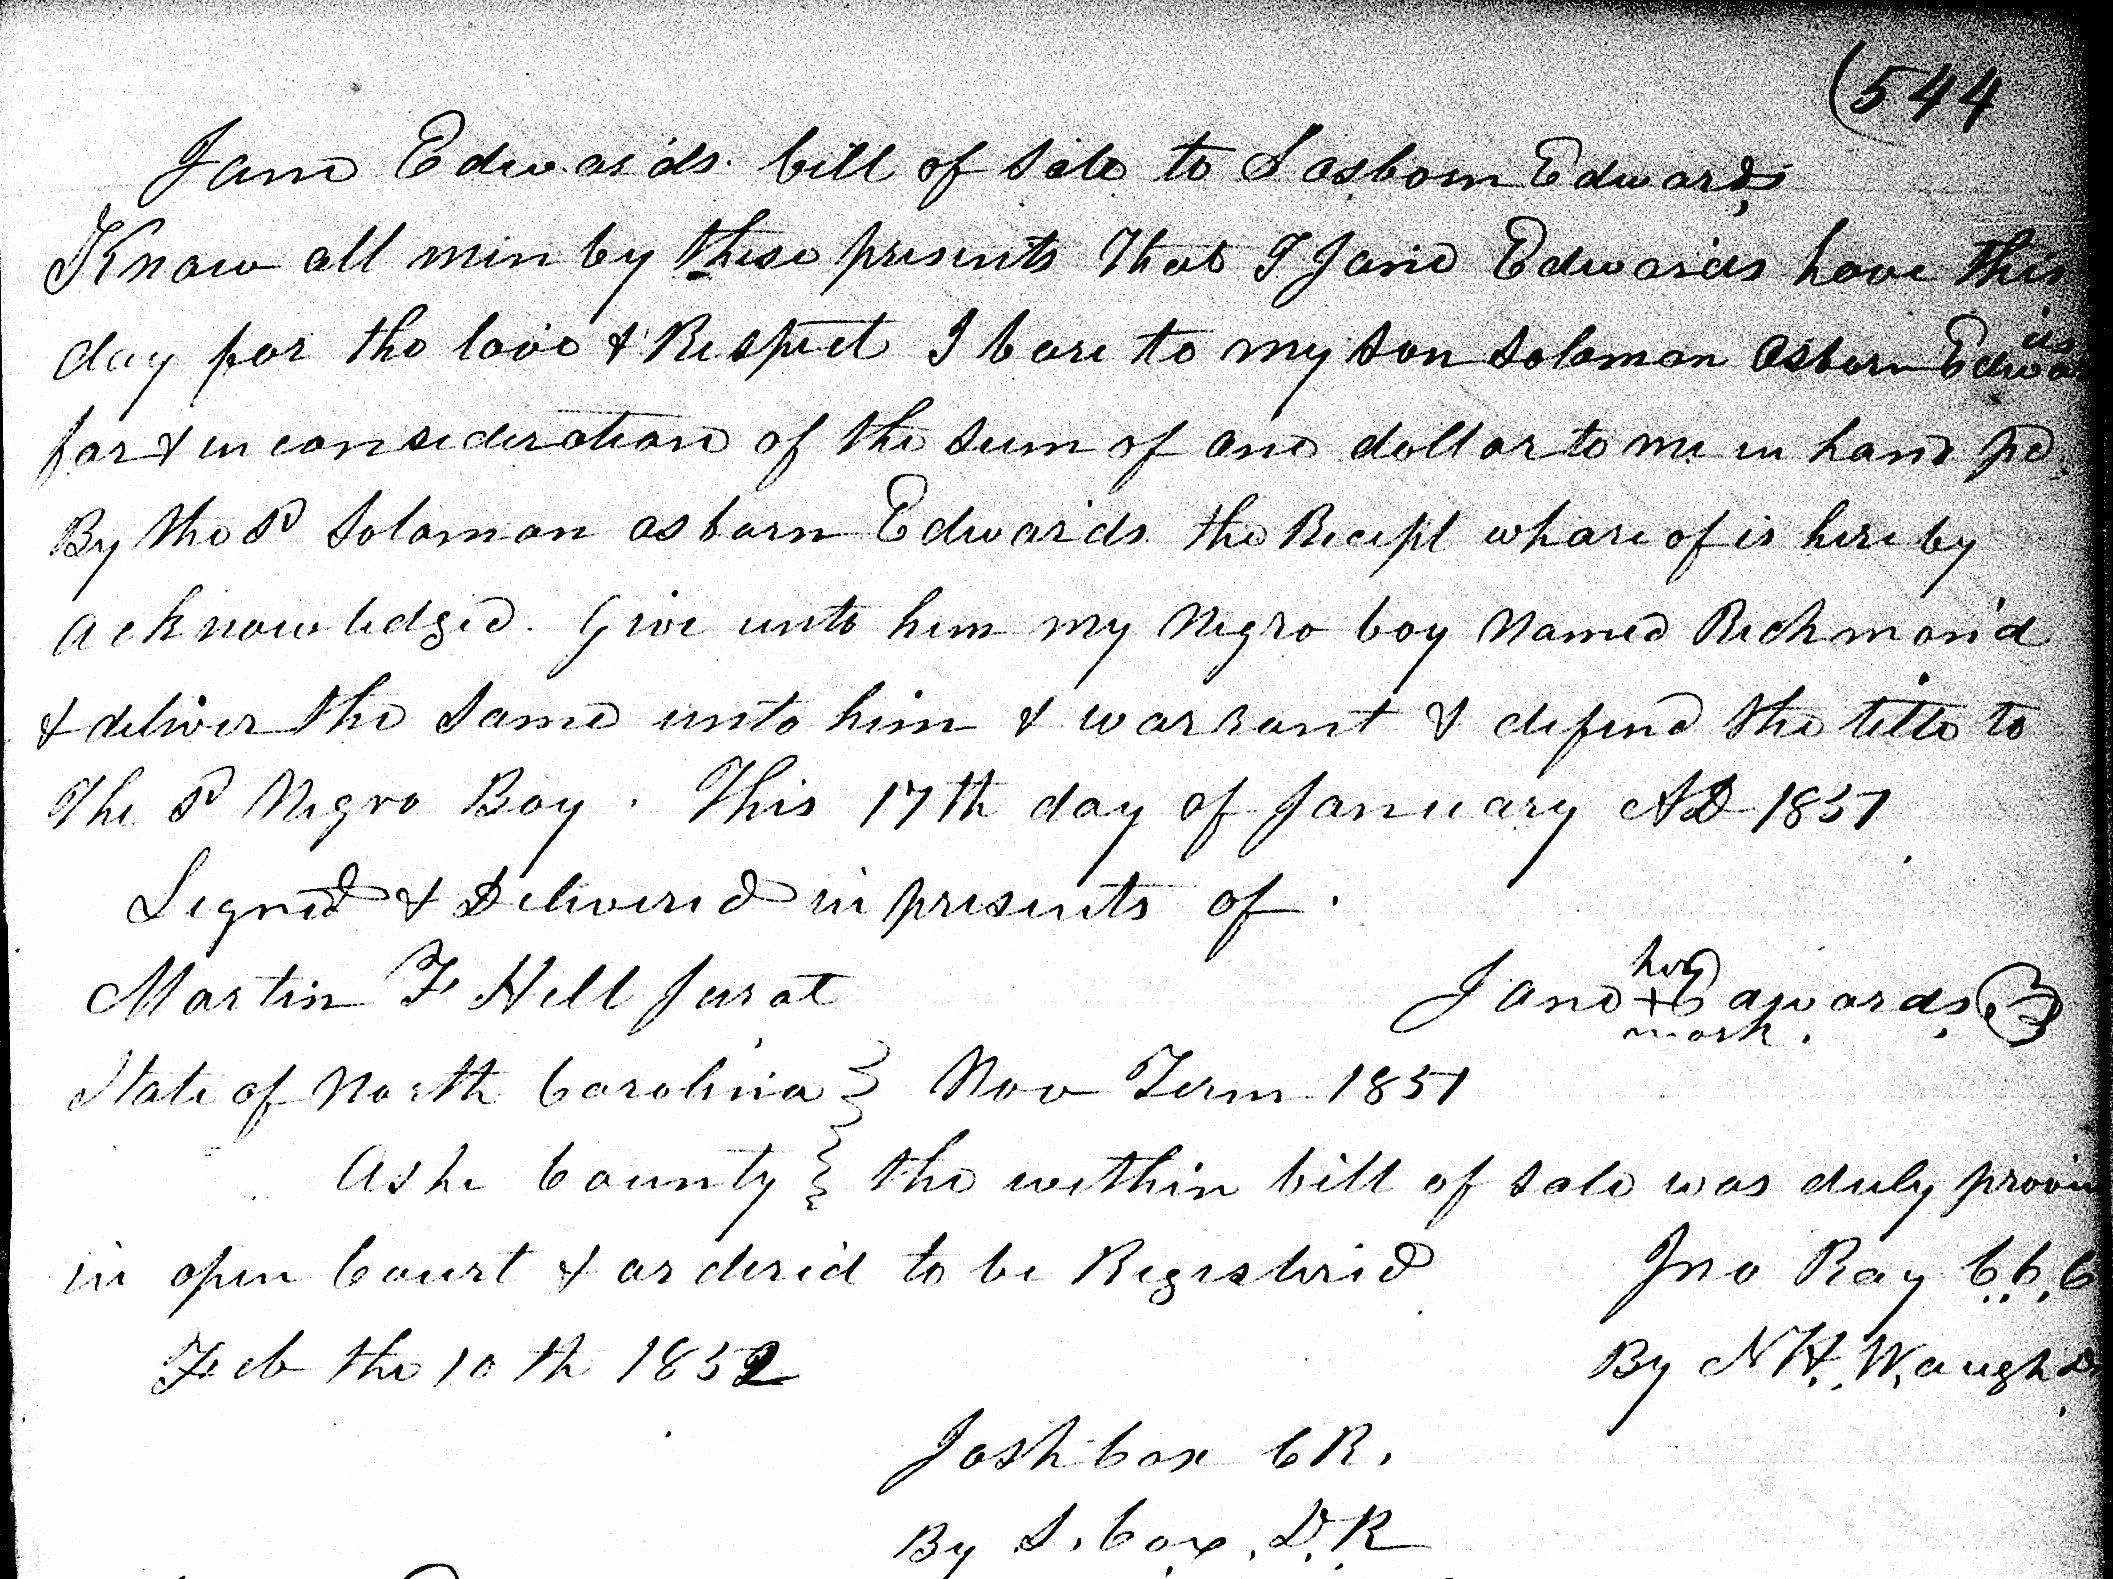 (544
Jane Edwards bill of Sale to S asborn Edwards
Know all men by these presents That I Jane Edwards have this
day for the love & Respect I bare to my son Soloman Asborn Edwards
for & in consideration of the sum of one dollar to me in hand pd.
By the sd Soloman asborn Edwards the Recept whare of is here by
acknowledged. Give unto him my Negro boy Named Richmond
& deliver the same unto him & warrant & defend the title to
The sd Negro Boy. This 17th day of January AD 1851
Signed & Delivered in presents of.
Martin F Hill Jurat
Jane her + mark Edwards
State of North Carolina } Nov Term 1851
Ashe County } the within bill of sale was duly proven
in open Court & ordered to be Registered Jno Ray C.C.C
Feb the 10th 1852 By N H. Waugh D
Josh Cox C R.
By S. Cox. D. R